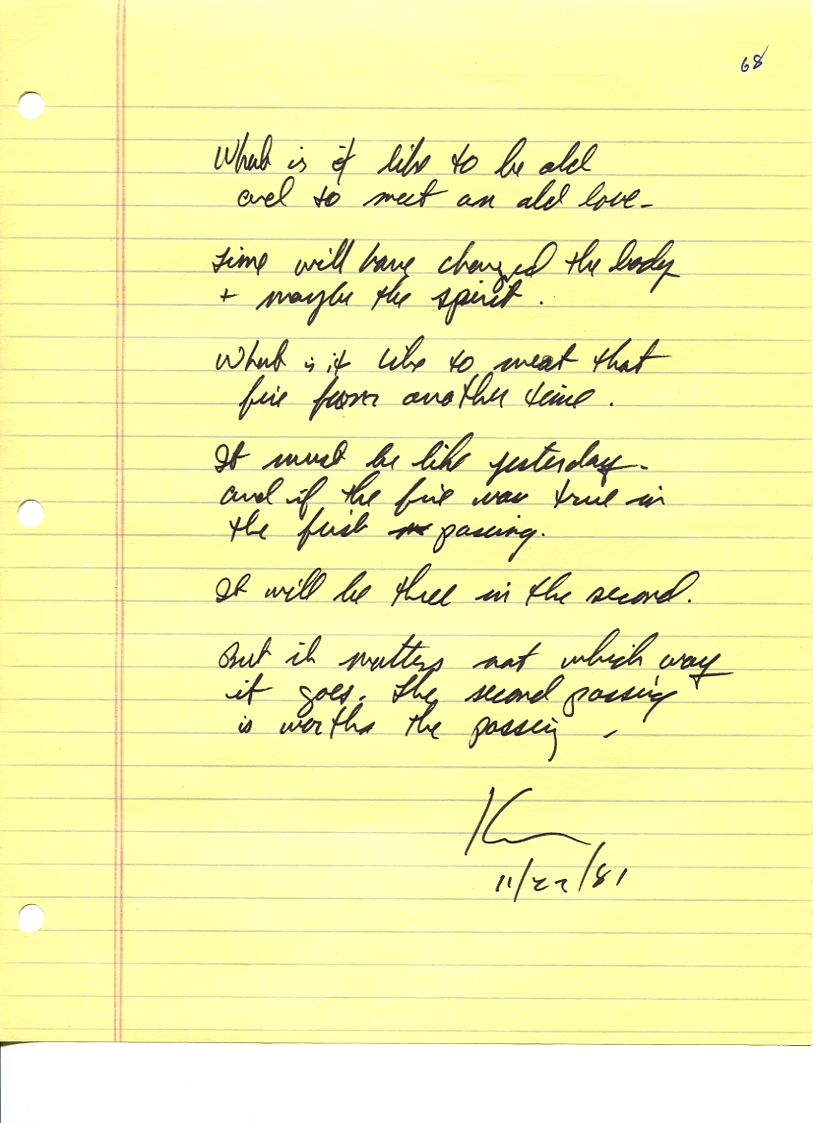 68
What is it like to be old
and to meet an old love -
Time will have changed the body
+ maybe the spirit.
What is it like to meat that
fire from another time.
It must be like yesterday -
and if the fire was true in
the first passing.
It will be three in the second.
But it matters not which way
it goes. The second passing
is worth the passing -
11/22/81